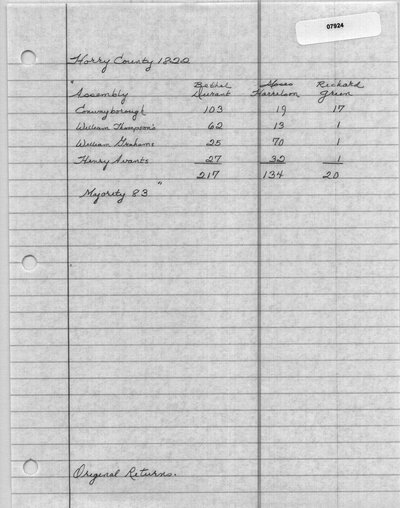 07924
Horry County 1822
" Assembly Bethel Durant Moses Harrelson Richard Green
Conwayborough 103 19 17
William Thompson's 62 13 1
William Grahams 25 70 1
Henry Avants 27 32 1
217 134 20
Majority 83 "
Original Returns.